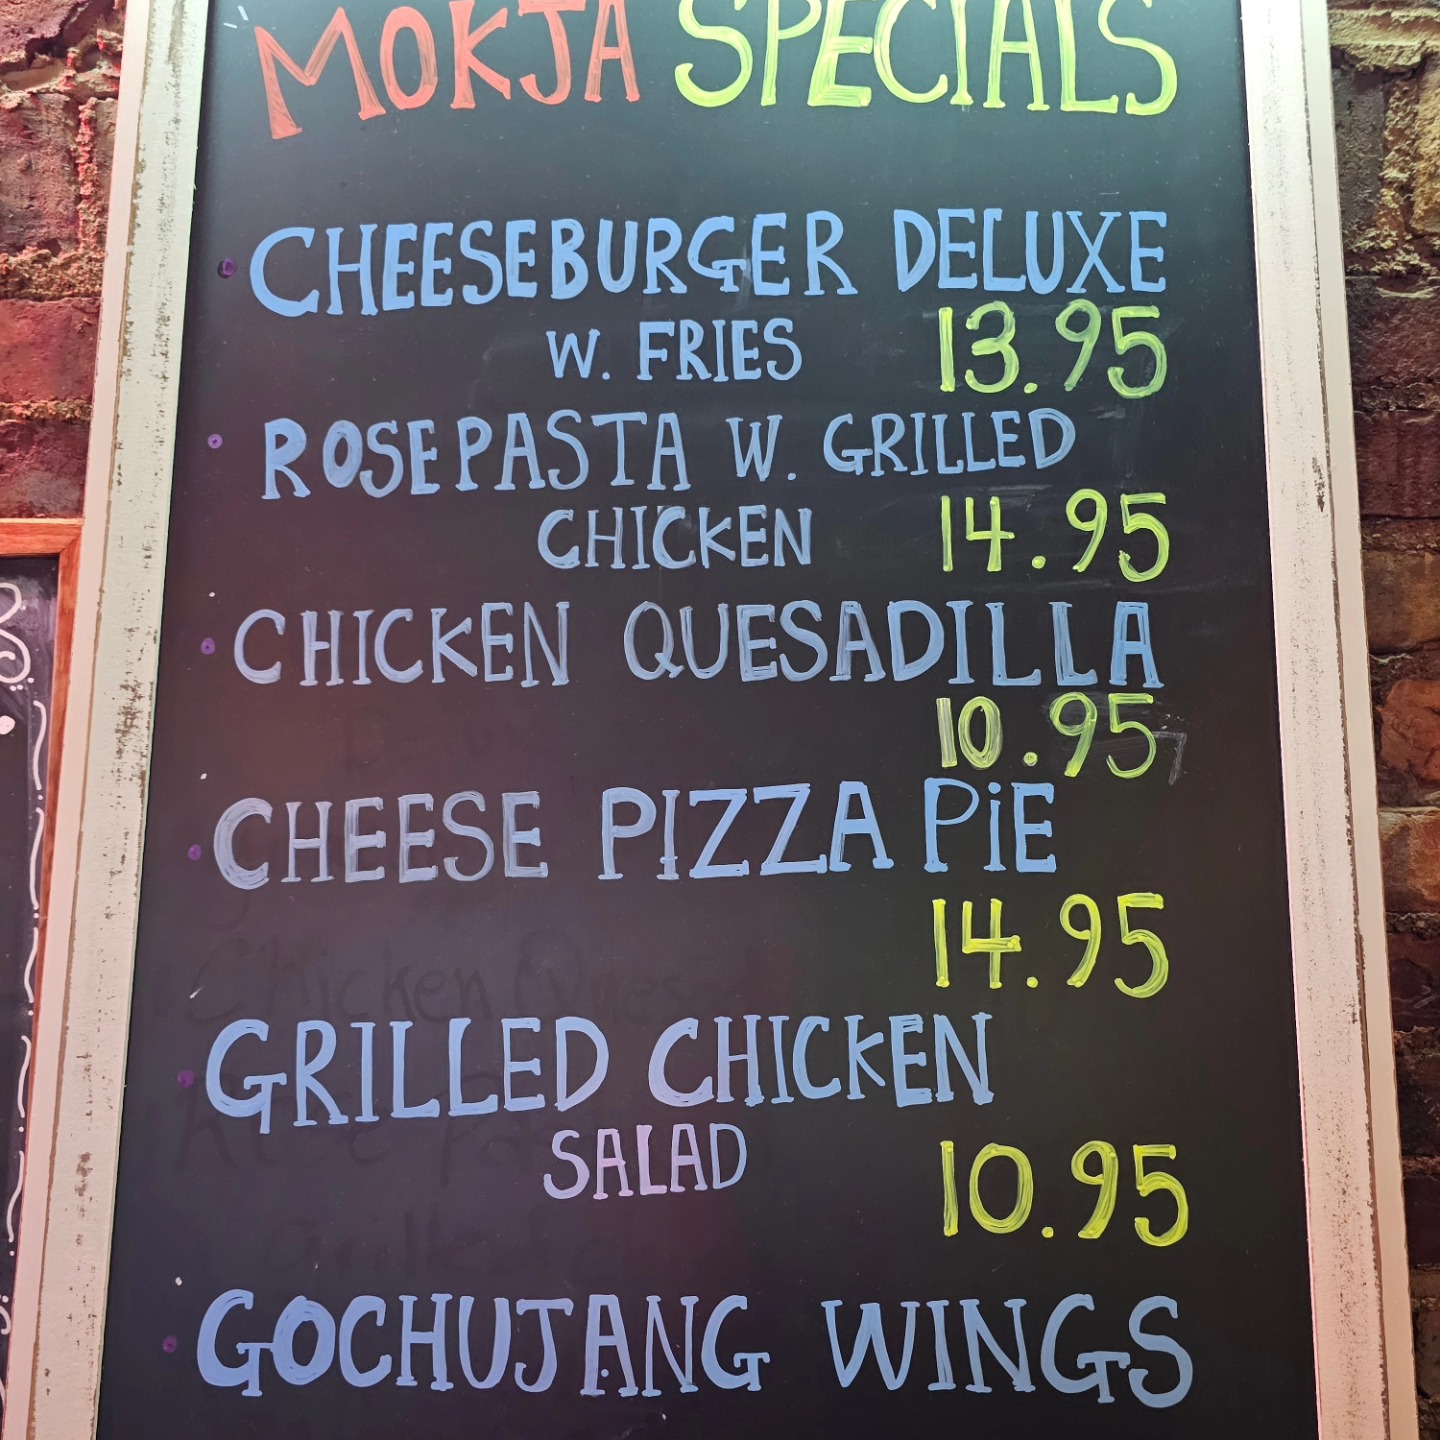 MOKJA SPECIALS
CHEESEBURGER DELUXE
W. FRIES 13.95
ROSE PASTA W. GRILLED
CHICKEN 14.95
CHICKEN QUESADILLA
10.95
CHEESE PIZZA PiE
14.95
Chicken Quesad
GRILLED CHICKEN
SALAD 10.95
GOCHUJANG WINGS